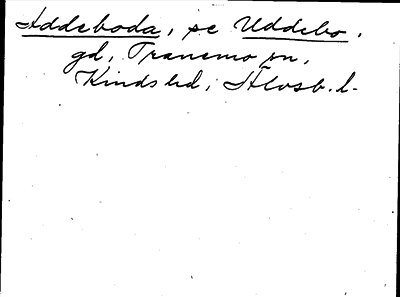 Addeboda, se Uddebo,
gd, Tranemo sn,
Kinds hd, Älvsb. l.